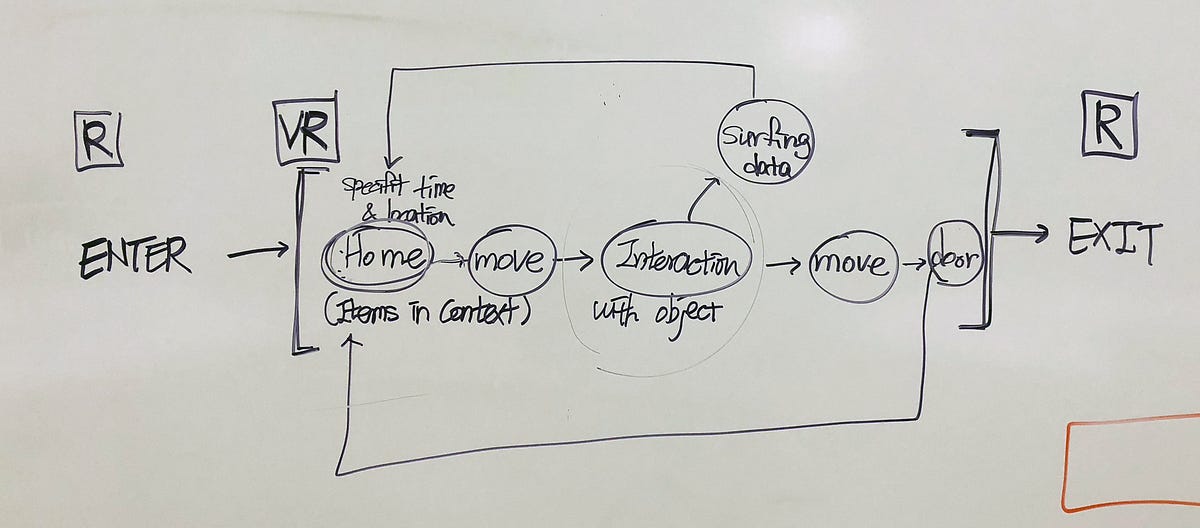 R
VR
R
surfing
data
specifit time
& location
ENTER
Home
move
Interaction
move
door
EXIT
(Items in context)
with object